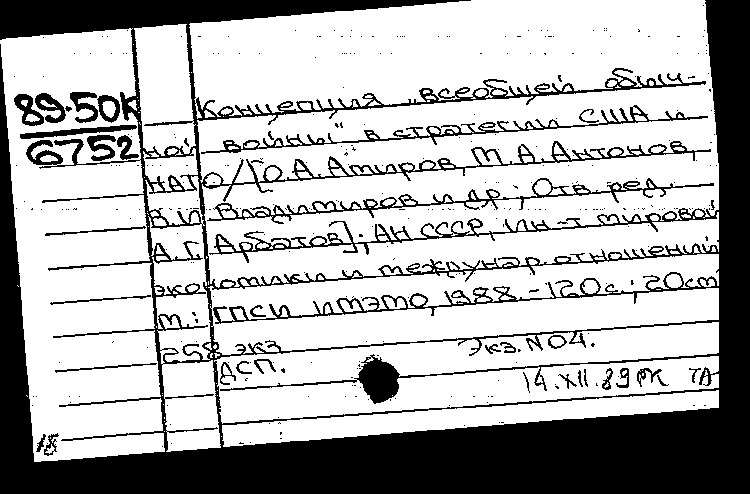 89-50К
6752
Концепция „всеобщей обыч-
ной войны" в стратегии США и
НАТО/[О.А.Амиров, М.А.Антонов,
В.И. Владимиров и др.; Отв. ред.
А.Г. Арбатов]; АН СССР, Ин-т мировой
экономики и междунар. отношений
М.: ГПСИ ИМЭМО, 1988.-120с.; 20cm
258 экз
Экз. N04.
ДСП.
14.XII.89 РК ТА
18